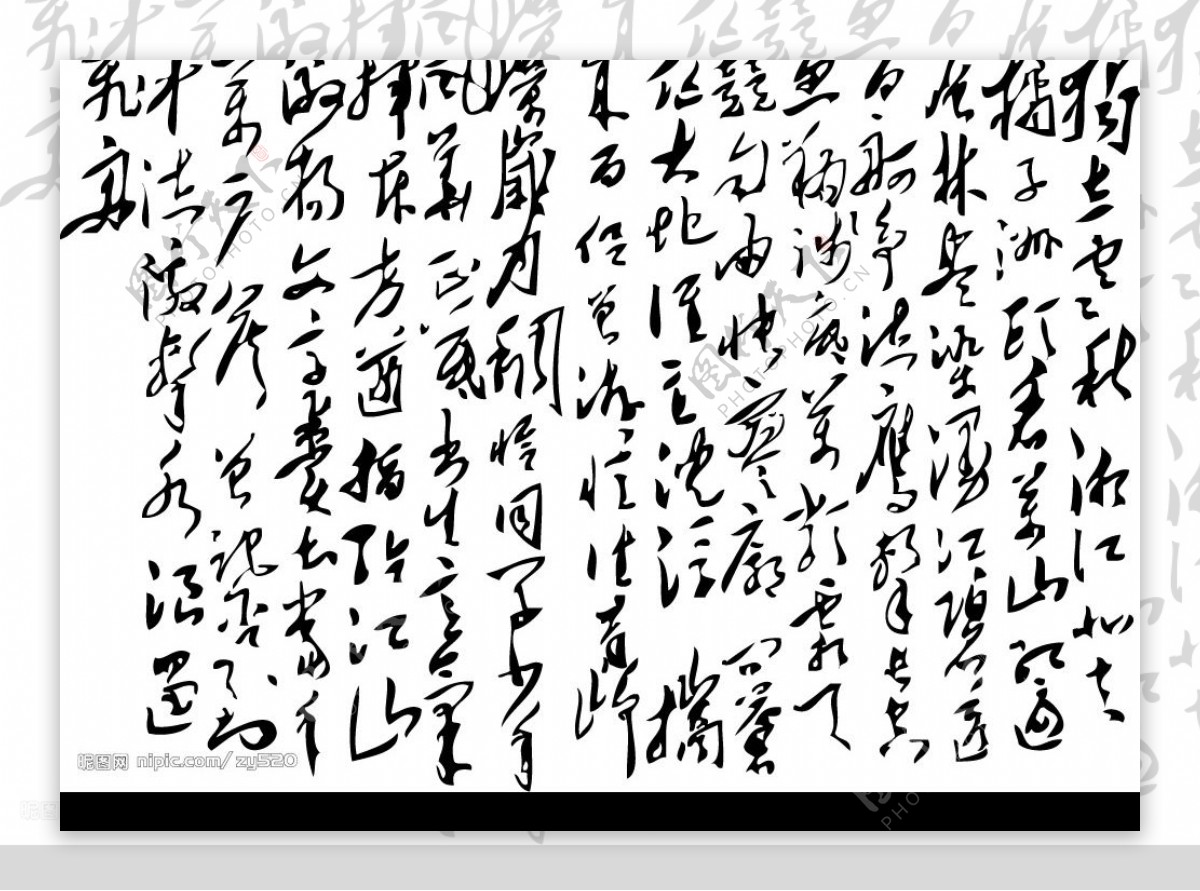 独立寒秋湘江北去
橘子洲头看万山红遍
层林尽染漫江碧透
百舸争流鹰击长空
鱼翔浅底万类霜天
竞自由怅寥廓问苍
茫大地谁主沉浮携
来百侣曾游忆往昔峥
嵘岁月稠恰同学少年
风华正茂书生意气
挥斥方遒指点江山
激扬文字粪土当年
万户侯曾记否到
中流击水浪遏
飞舟
昵图网 nipic.com/zy520